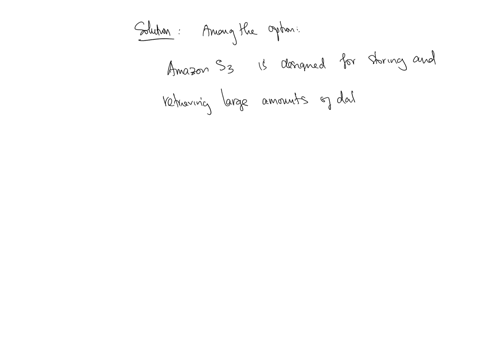 Solution: Among the option:
Amazon S3 is designed for storing and
retrieving large amounts of dat